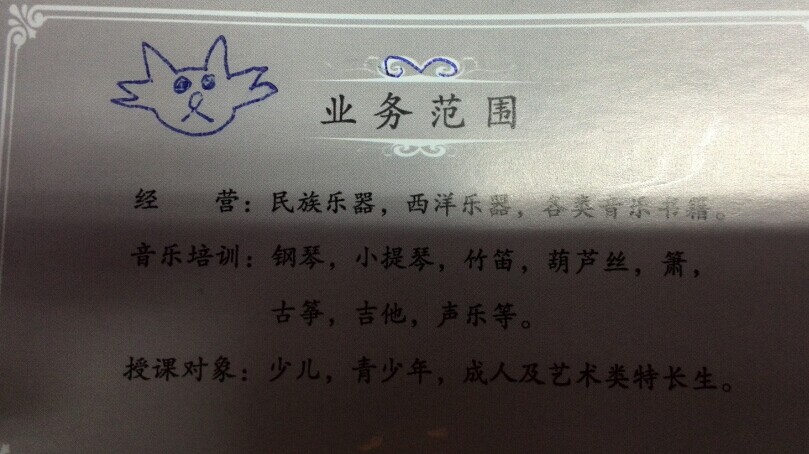 业务范围
经 营：民族乐器，西洋乐器，各类音乐书籍。
音乐培训：钢琴，小提琴，竹笛，葫芦丝，箫，
古筝，吉他，声乐等。
授课对象：少儿，青少年，成人及艺术类特长生。